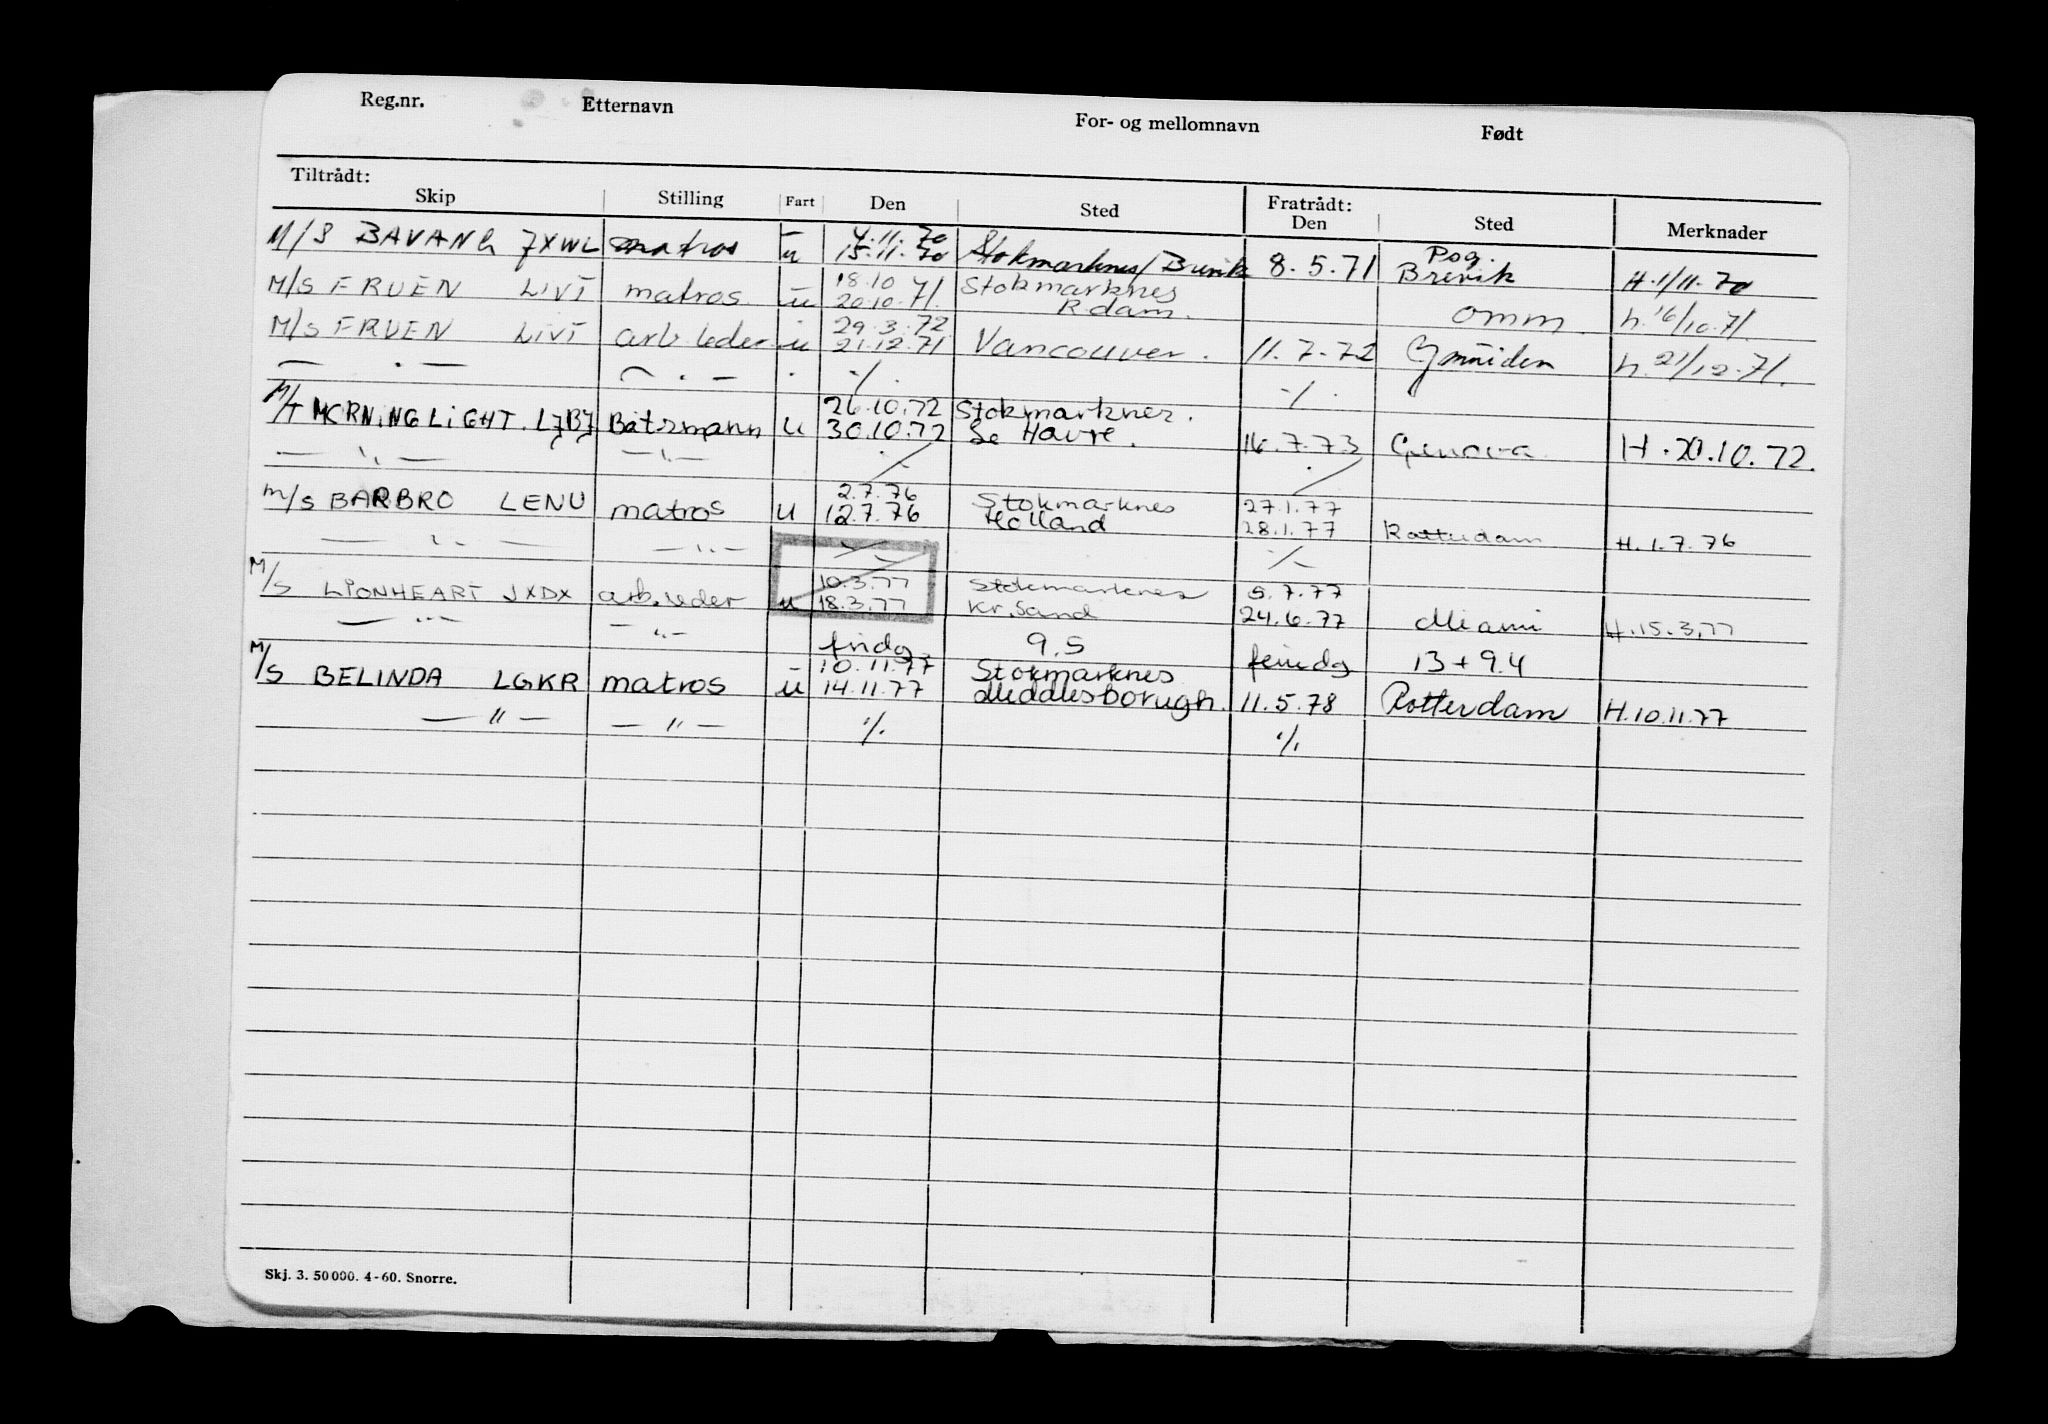 Reg.nr. Etternavn For- og mellomnavn Født
Tiltrådt: Fratrådt:
Skip Stilling Fart Den Sted Den Sted Merknader
4.11.70 Pog.
M/S BAVANG JXWL matros u 15.11.70 Stokmarknes/Brevik 8.5.71 Brevik H.1/11.70
18.10 71 Stokmarknes
M/S FRUEN LIVI matros u 20.10.71. Rdam. omm. h.16/10.71.
29.3.72
M/S FRUEN LIVI arb.leder u 21.12.71 Vancouver. 11.7.72 Ymuiden h.21/12.71.
— · — — · — · ·/· ·/·
26.10.72 Stokmarknes.
M/T MORNINGLIGHT. LJBJ Båtsmann u 30.10.72 Le Havre. 16.7.73 Genova H.20.10.72.
— " — — " — ·/· ·/·
2.7.76 Stokmarknes 27.1.77
M/S BARBRO LENU matros u 12.7.76 Holland 28.1.77 Rotterdam H.1.7.76
— " — — " — ·/· ·/·
10.3.77 Stokmarknes 5.7.77
M/S LIONHEART JXDX arb.leder u 18.3.77 Kr.Sand 24.6.77 Miami H.15.3.77
— " — — " — 9.5 13+9.4
10.11.77 Stokmarknes
M/S BELINDA LGKR matros u 14.11.77 Meddlesborugh. 11.5.78 Rotterdam H.10.11.77
— " — — " — ·/· ·/·
Skj. 3. 50 000. 4-60. Snorre.